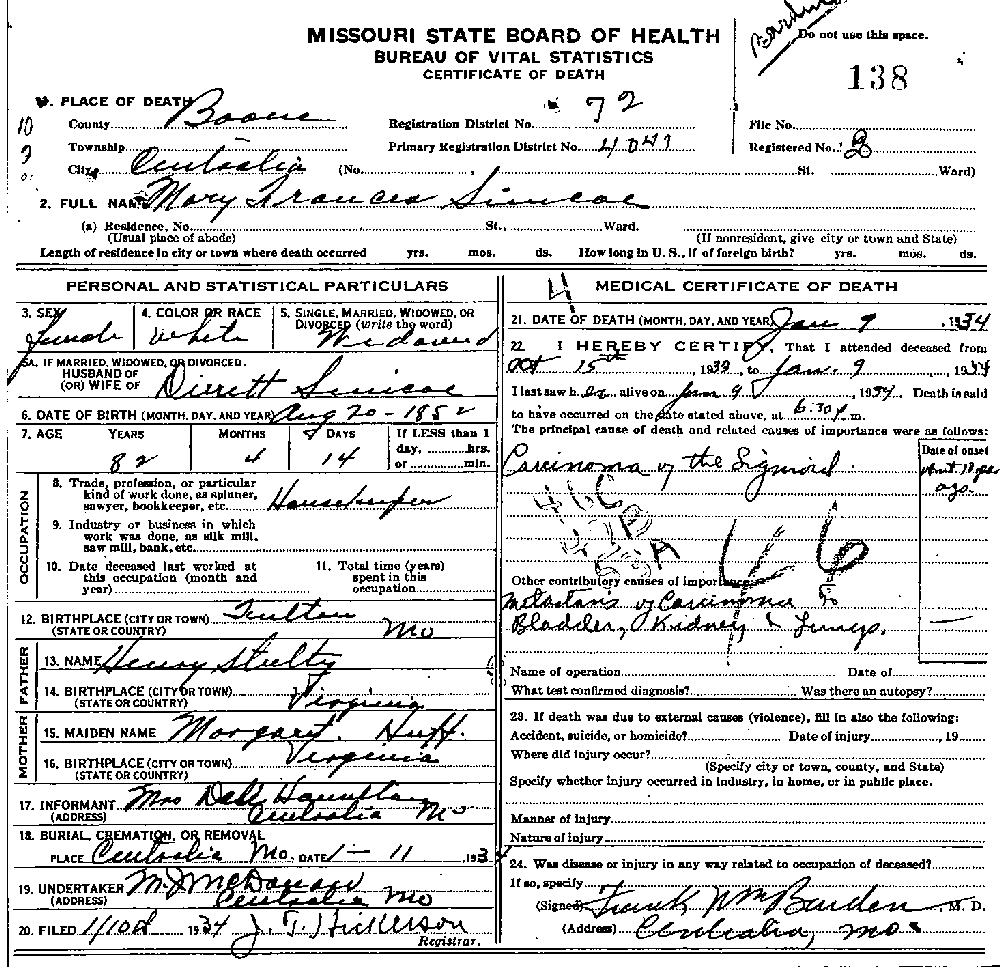 MISSOURI STATE BOARD OF HEALTH
BUREAU OF VITAL STATISTICS
CERTIFICATE OF DEATH
Do not use this space.
138
1. PLACE OF DEATH
County Boone
Registration District No. 72
File No.
Township
Primary Registration District No. 4041
Registered No. 2
City Centralia (No. , St. Ward)
2. FULL NAME Mary Frances Simcoe
(a) Residence, No. St., Ward.
(Usual place of abode) (If nonresident, give city or town and State)
Length of residence in city or town where death occurred yrs. mos. ds. How long in U. S., if of foreign birth? yrs. mos. ds.
PERSONAL AND STATISTICAL PARTICULARS
3. SEX Female
4. COLOR OR RACE White
5. SINGLE, MARRIED, WIDOWED, OR DIVORCED (write the word) Widowed
5A. IF MARRIED, WIDOWED, OR DIVORCED.
HUSBAND OF
(OR) WIFE OF Simcoe
6. DATE OF BIRTH (MONTH, DAY, AND YEAR) Aug 20 - 1852
7. AGE YEARS MONTHS DAYS If LESS than 1
day, hrs.
or min.
82 4 14
OCCUPATION
8. Trade, profession, or particular
kind of work done, as spinner,
sawyer, bookkeeper, etc. Housekeeper
9. Industry or business in which
work was done, as silk mill,
saw mill, bank, etc.
10. Date deceased last worked at
this occupation (month and
year)
11. Total time (years)
spent in this
occupation
12. BIRTHPLACE (CITY OR TOWN) Fulton
(STATE OR COUNTRY) Mo
FATHER
13. NAME Henry
14. BIRTHPLACE (CITY OR TOWN)
(STATE OR COUNTRY) Virginia
MOTHER
15. MAIDEN NAME Margaret Huff
16. BIRTHPLACE (CITY OR TOWN)
(STATE OR COUNTRY) Virginia
17. INFORMANT Mrs Dell Hamilton
(ADDRESS) Centralia Mo
18. BURIAL, CREMATION, OR REMOVAL
PLACE Centralia Mo. DATE 1 - 11 , 1934
19. UNDERTAKER
(ADDRESS) Centralia Mo
20. FILED 1/10 1934 J. T. Hickerson
Registrar.
MEDICAL CERTIFICATE OF DEATH
21. DATE OF DEATH (MONTH, DAY, AND YEAR) Jan 9 , 1934
22 I HEREBY CERTIFY, That I attended deceased from
Oct 15th , 1932, to Jan. 9 , 1934
I last saw her alive on Jan 9 , 1934 Death is said
to have occurred on the date stated above, at 6:30 P. m.
The principal cause of death and related causes of importance were as follows:
Date of onset
Carcinoma of the Sigmoid. ago.
46
Other contributory causes of importance:
Metastasis of Carcinoma to
Bladder, Kidney & Lungs.
Name of operation Date of
What test confirmed diagnosis? Was there an autopsy?
23. If death was due to external causes (violence), fill in also the following:
Accident, suicide, or homicide? Date of injury , 19
Where did injury occur?
(Specify city or town, county, and State)
Specify whether injury occurred in industry, in home, or in public place.
Manner of injury
Nature of injury
24. Was disease or injury in any way related to occupation of deceased?
If so, specify
(Signed) Frank Burden M. D.
(Address) Centralia, Mo